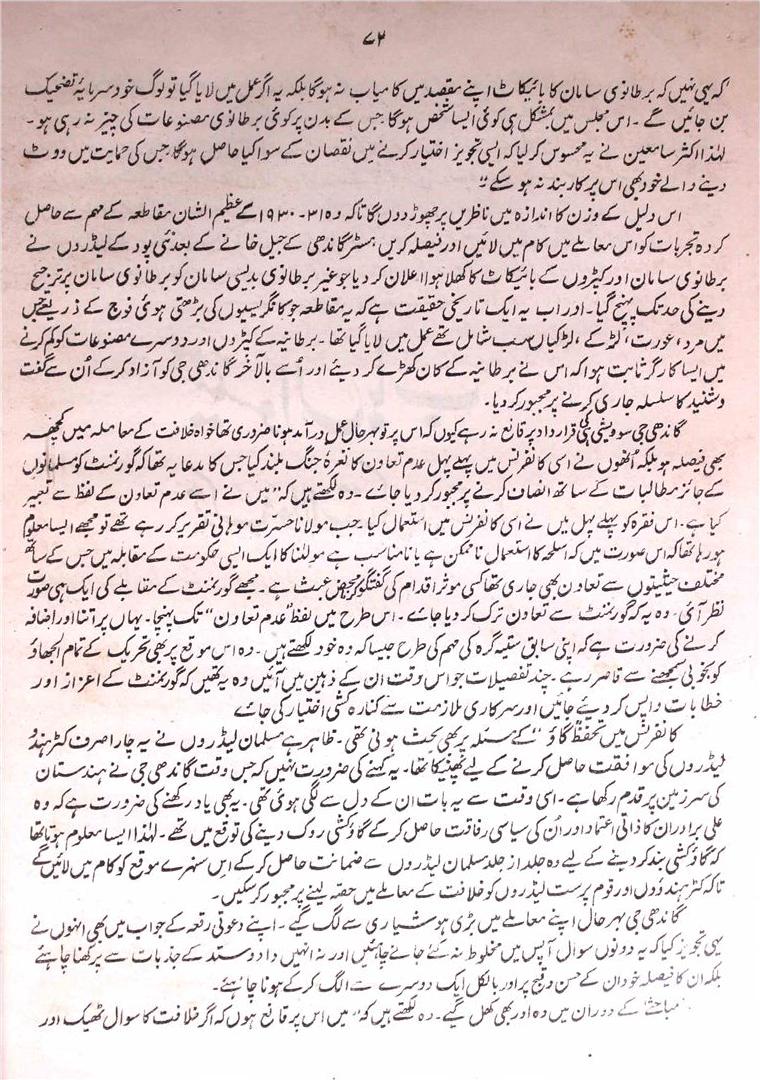 ۷۲
کہ یہی نہیں کہ برطانوی سامان کا بائیکاٹ اپنے مقصد میں کامیاب نہ ہوگا بلکہ یہ اگر عمل میں لایا گیا تو لوگ خود سرمایۂ تضحیک
بن جائیں گے۔ اس مجلس میں بمشکل ہی کوئی ایسا شخص ہوگا جس کے بدن پر کوئی برطانوی مصنوعات کی چیز نہ رہی ہو۔
لہٰذا اکثر سامعین نے یہ محسوس کر لیا کہ ایسی تجویز اختیار کرنے میں نقصان کے سوا کیا حاصل ہوگا جس کی حمایت میں ووٹ
دینے والے خود بھی اس پر کاربند نہ ہو سکے"
اس دلیل کے وزن کا اندازہ میں ناظرین پر چھوڑ دوں گا تاکہ وہ ۳۱-۱۹۳۰ء کے عظیم الشان مقاطعہ کے مہم سے حاصل
کردہ تجربات کو اس معاملے میں کام میں لائیں اور فیصلہ کریں مسٹر گاندھی کے جیل خانے کے بعد نئی پود کے لیڈروں نے
برطانوی سامان اور کپڑوں کے بائیکاٹ کا کھلا ہوا اعلان کر دیا جو غیر برطانوی بدیسی سامان کو برطانوی سامان پر ترجیح
دینے کی حد تک پہنچ گیا۔ اور اب یہ ایک تاریخی حقیقت ہے کہ یہ مقاطعہ جو کانگریسیوں کی بڑھتی ہوئی فوج کے ذریعے جس
میں مرد، عورت، لڑکے، لڑکیاں سب شامل تھے عمل میں لایا گیا تھا۔ برطانیہ کے کپڑوں اور دوسرے مصنوعات کو کم کرنے
میں ایسا کارگر ثابت ہوا کہ اس نے برطانیہ کے کان کھڑے کر دیئے اور اُسے بالآخر گاندھی جی کو آزاد کر کے اُن سے گفت
و شنید کا سلسلہ جاری کرنے پر مجبور کر دیا۔
گاندھی جی سودیشی کی قرارداد پر قانع نہ رہے کیوں کہ اس پر تو بہر حال عمل درآمد ہونا ضروری تھا خواہ خلافت کے معاملہ میں کچھ
بھی فیصلہ ہو بلکہ اُنھوں نے اسی کانفرنس میں پہلے پہل عدم تعاون کا نعرۂ جنگ بلند کیا جس کا مدعا یہ تھا کہ گورنمنٹ کو مسلمانوں
کے جائز مطالبات کے ساتھ انصاف کرنے پر مجبور کر دیا جائے۔ وہ لکھتے ہیں کہ "میں نے اسے عدم تعاون کے لفظ سے تعبیر
کیا ہے۔ اس فقرہ کو پہلے پہل میں نے اسی کانفرنس میں استعمال کیا۔ جب مولانا حسرت موہانی تقریر کر رہے تھے تو مجھے ایسا معلوم
ہو رہا تھا کہ اس صورت میں کہ اسلحہ کا استعمال ناممکن ہے یا نامناسب ہے مولٰنا کا ایک ایسی حکومت کے مقابلہ میں جس کے ساتھ
مختلف حیثیتوں سے تعاون بھی جاری تھا کسی موثر اقدام کی گفتگو محض عبث ہے۔ مجھے گورنمنٹ کے مقابلے کی ایک ہی صورت
نظر آئی۔ وہ یہ کہ گورنمنٹ سے تعاون ترک کر دیا جائے۔ اس طرح میں لفظ "عدم تعاون" تک پہنچا۔ یہاں پر اتنا اور اضافہ
کرنے کی ضرورت ہے کہ اپنی سابق ستیہ گرہ کی مہم کی طرح جیسا کہ وہ خود لکھتے ہیں۔ وہ اس موقع پر بھی تحریک کے تمام الجھاؤ
کو بخوبی سمجھنے سے قاصر رہے۔ چند تفصیلات جو اس وقت ان کے ذہین میں آئیں وہ یہ تھیں کہ گورنمنٹ کے اعزاز اور
خطابات واپس کر دیئے جائیں اور سرکاری ملازمت سے کنارہ کشی اختیار کی جائے
کانفرنس میں تحفظ گاؤ" کے مسئلہ پر بھی بحث ہونی تھی۔ ظاہر ہے مسلمان لیڈروں نے یہ چارا صرف کٹر ہندو
لیڈروں کی موافقت حاصل کرنے کے لیے پھینکا تھا۔ یہ کہنے کی ضرورت نہیں کہ جس وقت گاندھی جی نے ہندستان
کی سرزمین پر قدم رکھا ہے۔ اسی وقت سے یہ بات ان کے دل سے لگی ہوئی تھی۔ یہ بھی یاد رکھنے کی ضرورت ہے کہ وہ
علی برادران کا ذاتی اعتماد اور اُن کی سیاسی رفاقت حاصل کر کے گاؤکشی روک دینے کی توقع میں تھے۔ لہٰذا ایسا معلوم ہوتا تھا
کہ گاؤکشی بند کر دینے کے لیے وہ جلد از جلد مسلمان لیڈروں سے ضمانت حاصل کر کے اس سنہرے موقع کو کام میں لائیں گے
تاکہ کٹر ہندوؤں اور قوم پرست لیڈروں کو خلافت کے معاملے میں حصہ لینے پر مجبور کر سکیں۔
گاندھی جی بہر حال اپنے معاملے میں بڑی ہوشیاری سے لگ گیے۔ اپنے دعوتی رقعہ کے جواب میں بھی انہوں نے
یہی تجویز کیا کہ یہ دونوں سوال آپس میں مخلوط نہ کئے جانے چاہئیں اور نہ انہیں داد و ستد کے جذبات سے پرکھنا چاہئے
بلکہ ان کا فیصلہ خود ان کے حسن و قبح پر اور بالکل ایک دوسرے سے الگ کر کے ہونا چاہئے۔
مباحثے کے دوران میں وہ اور بھی کھل گیے۔ وہ لکھتے ہیں کہ "میں اس پر قانع ہوں کہ اگر خلافت کا سوال ٹھیک اور